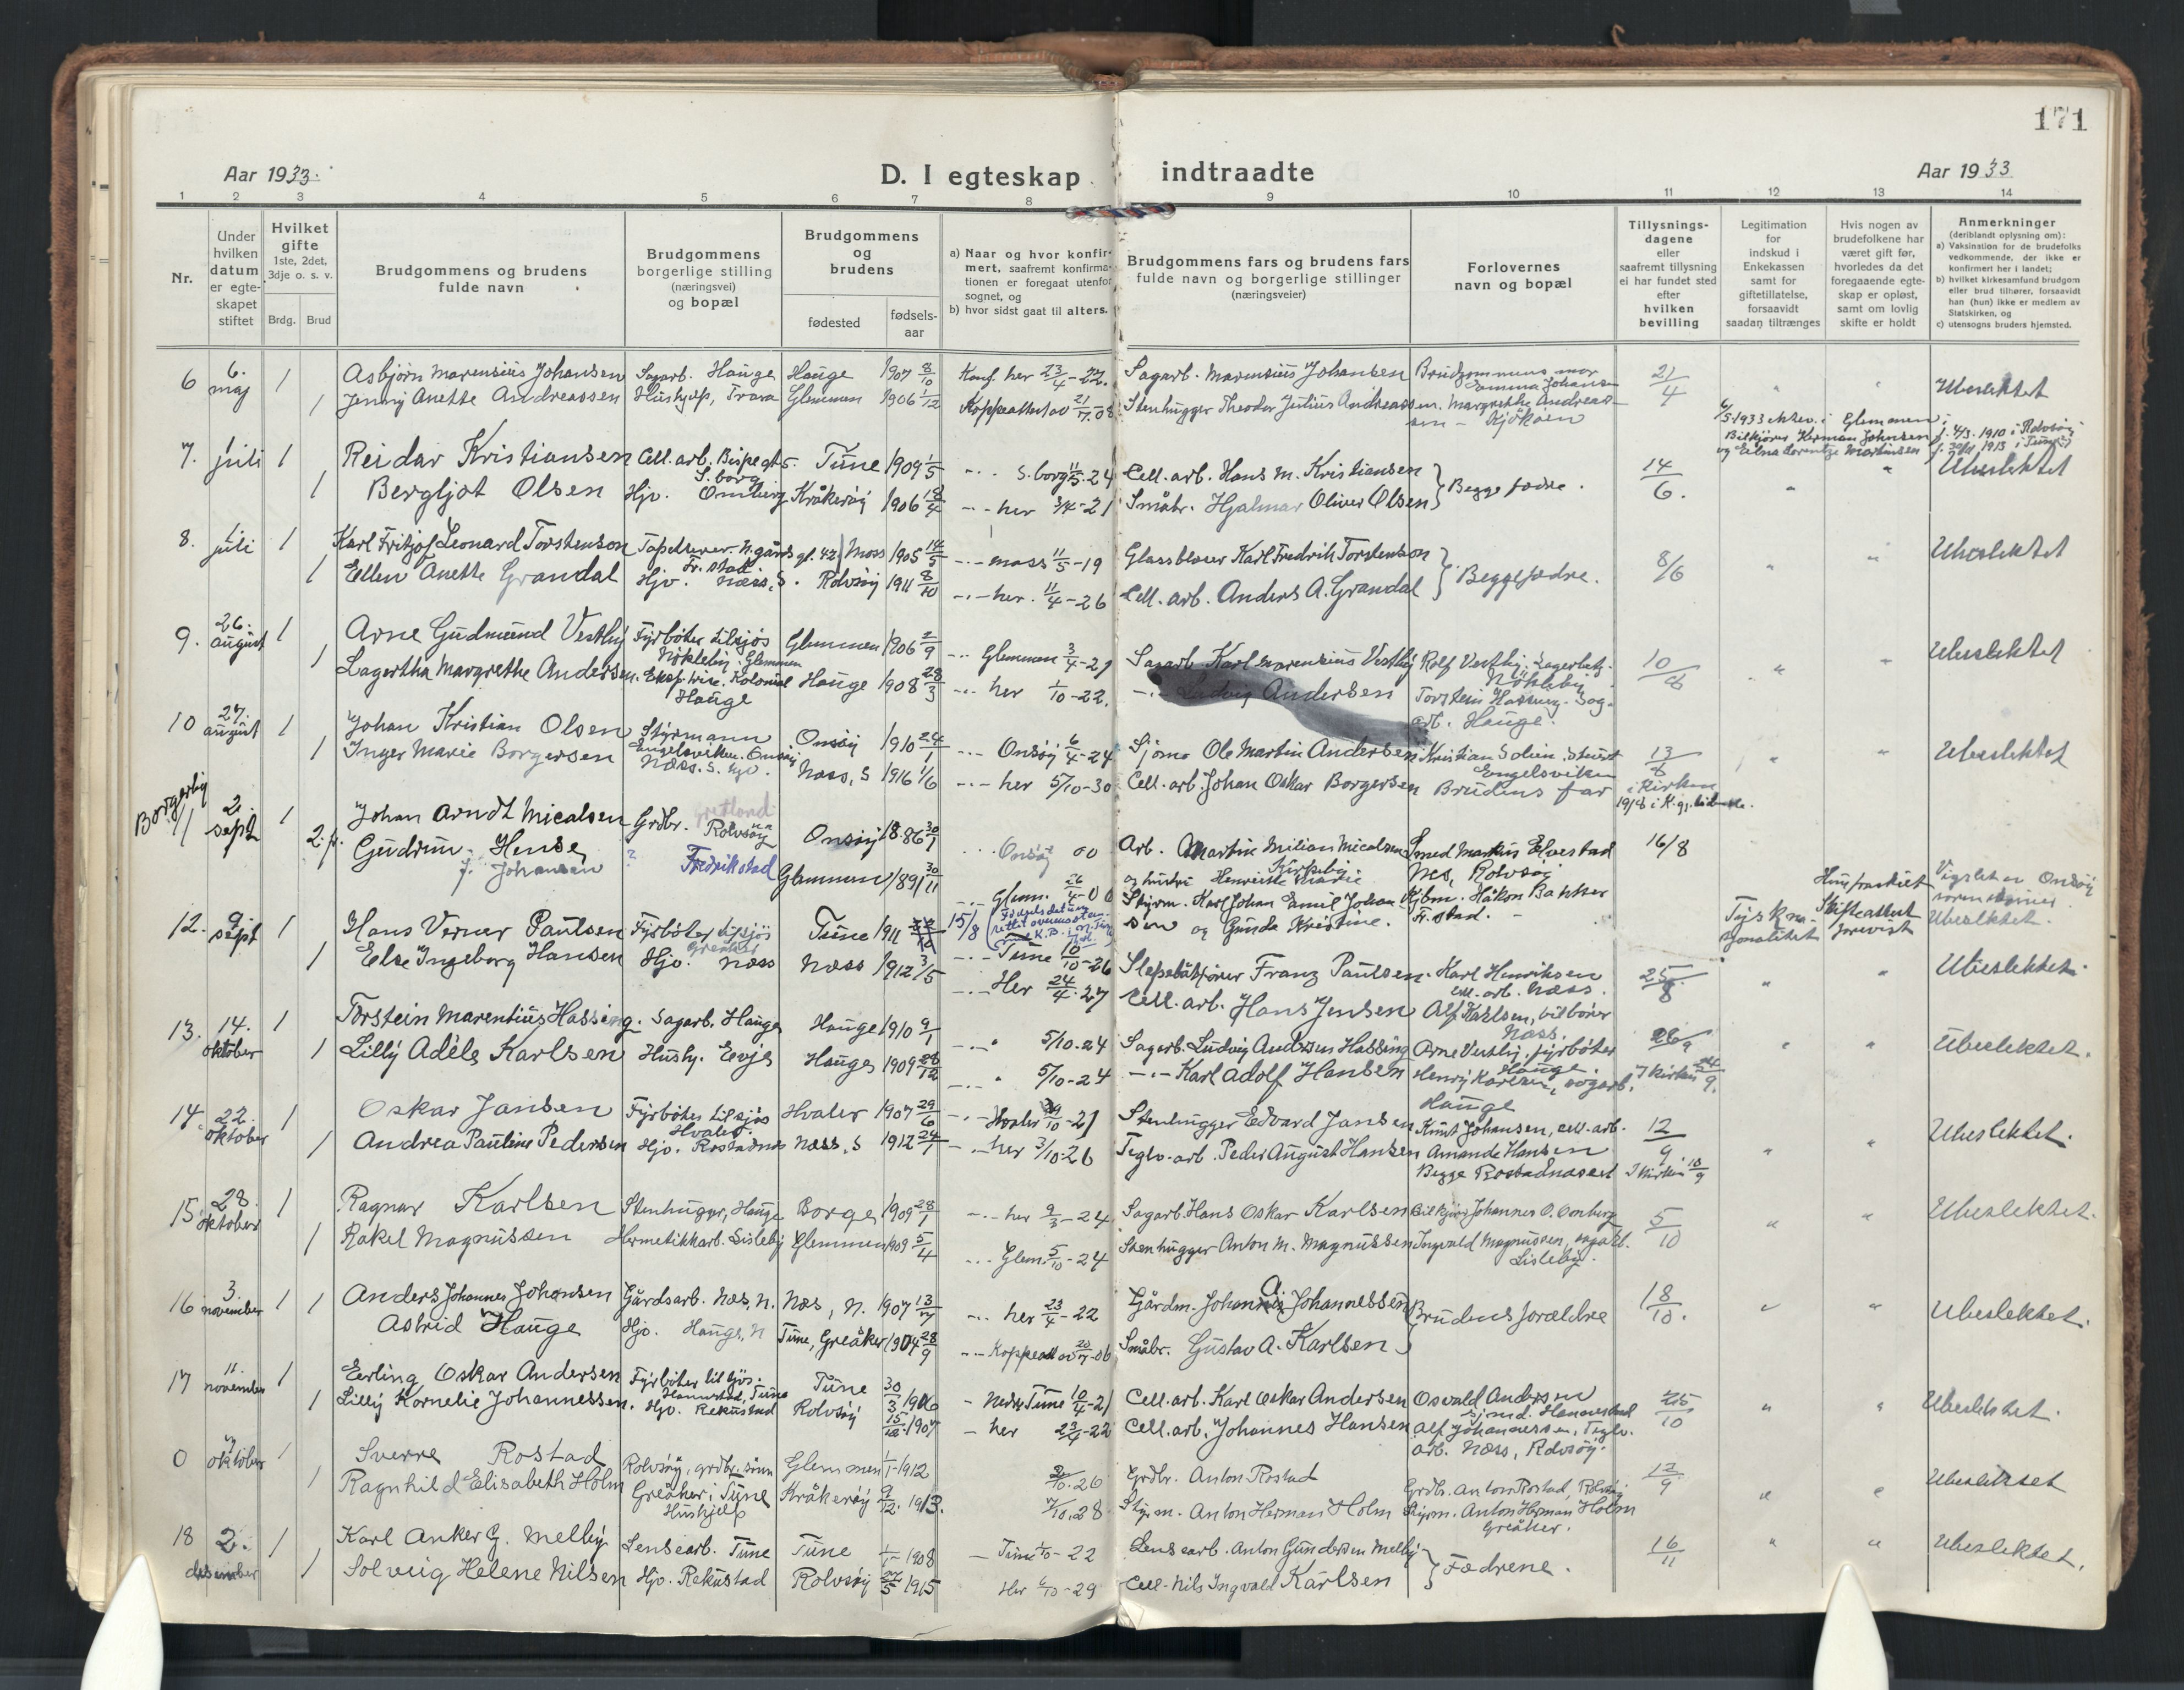 171
Aar 1933.
D. I egteskap indtraadte
Aar 1933
1 2 3 4 5 6 7 8 9 10 11 12 13 14
Nr.
Under hvilken datum er egteskapet stiftet
Hvilket gifte 1ste, 2det, 3dje o. s. v.
Brdg. Brud
Brudgommens og brudens fulde navn
Brudgommens borgerlige stilling (næringsvei) og bopæl
Brudgommens og brudens
fødested
fødsels-aar
a) Naar og hvor konfirmert, saafremt konfirmationen er foregaat utenfor sognet, og
b) hvor sidst gaat til alters.
Brudgommens fars og brudens fars fulde navn og borgerlige stillinger (næringsveier)
Forlovernes navn og bopæl
Tillysningsdagene eller saafremt tillysning ei har fundet sted efter hvilken bevilling
Legitimation for indskud i Enkekassen samt for giftetillatelse, forsaavidt saadan tiltrænges
Hvis nogen av brudefolkene har været gift før, hvorledes da det foregaaende egteskap er opløst, samt om lovlig skifte er holdt
Anmerkninger (deriblandt oplysning om):
a) Vaksination for de brudefolks vedkommende, der ikke er konfirmert her i landet;
b) hvilket kirkesamfund brudgom eller brud tilhører, forsaavidt han (hun) ikke er medlem av Statskirken, og
c) utensogns bruders hjemsted.
6 6. maj 1 Asbjørn Marensius Johansen Sagarb. Hauge Hauge 1907 8/10 Konf. her 23/4-22. Sagarb. Marensius Johansen Brudgommens mor 21/4 " " Ubeslektet
1 Jenny Anette Andreassen Hushjelp, Trara Glemmen 1906 1/12 Koppeattest av 21/7-08 Stenhugger Theodor Julius Andreassen. Margrethe Andreassen - Kjøkøen
6/5 1933 i Glemmen: Bilkjører Herman Johnsen f. 4/3 1910 i Rolvsøy og Edna Lorentze Martinsen
7. 1 juli 1 Reidar Kristiansen Cell. arb. Bispegt 5. S.borg Tune 1909 1/5 -.- S.borg 11/5-24 Cell. arb. Hans M. Kristiansen } Begge fædre. 14/6. " " Ubeslektet
1 Bergljot Olsen Hjv. Omberg Kråkerøy 1906 18/4 -.- her 3/4-21 Småbr. Hjalmar Oliver Olsen
8. 1 juli 1 Karl Fritjof Leonard Torstenson Tapetserer. N.gårds gt. 42 Fr.stad Moss 1905 14/5 -.- Moss 11/5-19 Glassblåser Karl Fredrik Torstenson } Begge fædre. 8/6 " " Ubeslektet
1 Ellen Anette Grandal Hjv. Næss, S. Rolvsøy 1911 8/10 -.- her. 11/4-26 Cell. arb. Anders A. Grandal
9. 26. august 1 Arne Gudmund Vestby Fyrbøter tilsjøs Nøkleby i Glemmen Glemmen 1906 2/9 -.- Glemmen 3/4-21 Sagarb. Karl Marensius Vestby Rolf Vestby, Sagarb. Nøkleby 10/8 " " Ubeslektet
1 Lagertha Margrethe Andersen. Eksp.trise. Kolonial Hauge Hauge 1908 28/3 -.- her 1/10-22. -.- Ludvig Andersen Torstein Hassing. Sagarb. Hauge.
10 27. august 1 Johan Kristian Olsen Styrmann Engelsviken. Onsøy Onsøy 1910 24/1 -.- Onsøy 6/4-24 Sjøm. Ole Martin Andersen Kristian Solin. Engelsviken 13/8 " " Ubeslektet
1 Inger Marie Borgersen Næss. S. Hjv. Næss, S 1916 1/6 -.- her 5/10-30 Cell. arb. Johan Oskar Borgersen Brudens far i kirken
Borgerlig 11 2. sept 1 Johan Arndt Micalsen Grdbr. Grøtland Rolvsøy Onsøy 1886 30/7 ... Onsøy 00 Arb. Martin Milian Micalsen og hustru Henriette Marie Smed Markus Elvestad Nes, Rolvsøy 16/8
2. fr. Gudrun Hense f. Johansen ? Fredrikstad Glemmen 1891 30/11 -.- Glem. 26/4-06 Styrm. Karl Johan Emil Johansen og Gunda Kristine. Kjbm. Håkon Bakker Fr.stad. - Tysk nasjonalitet Huns fraskilt Skifteattest forevist Vigslet av Onsøy sorenskriver Ubeslektet.
12. 9 sept 1 Hans Verner Paulsen Fyrbøter tilsjøs Greåker Tune 1911 15/8 (Fødselsdatum rettet -.- Tune 10/10-26 Slepebåtfører Franz Paulsen. Karl Henriksen cell. arb. Næss. 25/8 " " Ubeslektet.
1 Else Ingeborg Hansen Hjv. Næss Næss 1912 3/5 -.- Her 24/4-27 Cell. arb. Hans Jensen Alf Karlsen, Næss.
13. 14. oktober 1 Torstein Marentius Hassing. Sagarb. Hauge Hauge 1910 9/1 -.- " 5/10-24 Sagarb. Ludvig Andersen Hassing Arne Vestby, fyrbøter Hauge. 26/9 " " Ubeslektet.
1 Lilly Adèle Karlsen Hushj. Evje Hauge 1909 28/12 -.- " 5/10-24 -.- Karl Adolf Hansen Henry Karlsen, sagarb. Hauge I kirken 24/9.
14. 22. oktober 1 Oskar Jansen Fyrbøter tilsjøs Hvaler. Hvaler 1907 29/6 -.- Hvaler 29/10-21 Stenhugger Edvard Jansen Knut Johansen, cell. arb. 12/9 " " Ubeslektet.
1 Andrea Pauline Pedersen Hjv. Rostadnes Næss. S 1912 24/7 -.- her 3/10-26 Teglv. arb. Peder August Hansen Amanda Hansen Begge Rostadneset I kirken 10/9
15 28. oktober 1 Ragnar Karlsen Stenhugger, Hauge Borge 1909 28/1 -.- her 9/3-24 Sagarb. Hans Oskar Karlsen Bilkjører Johannes O. Omberg 5/10 " " Ubeslektet.
1 Rakel Magnussen Hermetikkarb. Lisleby Glemmen 1909 5/4 -.- Glem. 5/10-24 Stenhugger Anton M. Magnussen Ingvald Magnussen, sagarb. Lisleby.
16 3. november 1 1 Anders Johannes Johansen Gårdsarb. Næs, N. Næs, N. 1907 13/7 -.- her 23/4-22 Gårdm. Johan Johannessen Brudens foreldre 18/10. " " Ubeslektet.
Astrid Hauge Hjv. Hauge, N Tune, Greåker 1904 28/9 -.- Koppeatt. av 20/7-06 Småbr. Gustav A. Karlsen
17 11. november 1 Erling Oskar Andersen Fyrbøter tilsjøs. Hannestad, Tune Tune 30/3 1906 - Nedre Tune 10/4-21 Cell. arb. Karl Oskar Andersen Osvald Andersen Sjømd. Hannestad 25/10 " " Ubeslektet.
1 Lilly Kornelie Johannessen. Hjv. Rekustad Rolvsøy 15/12 1907 - her 23/4-22 Cell. arb. Johannes Hansen Alf Johannessen. Teglv. arb. Næss, Rolvsøy.
0 7 oktober 1 Sverre Rostad Rolvsøy, grdbr.sønn Glemmen 1/1-1912 2/10.26 Grdbr. Anton Rostad Grdbr. Anton Rostad, Rolvsøy 17/9 " " Ubeslektet
1 Ragnhild Elisabeth Holm Greåker i Tune Hushjelp Kråkerøy 9/12. 1913. 7/10.28 Styrm. Anton Herman Holm Styrm. Anton Herman Holm Greåker.
18 2. desember 1 Karl Anker G. Melby Lensearb. Tune Tune 1/1-1908 - Tune 1/10-22 Lensearb. Anton Gundersen Melby } Fædrene. 16/11 " " Ubeslektet.
1 Solveig Helene Nilsen Hjv. Rekustad Rolvsøy 27/5 1915 Her 6/10-29 Cell. Nils Ingvald Karlsen